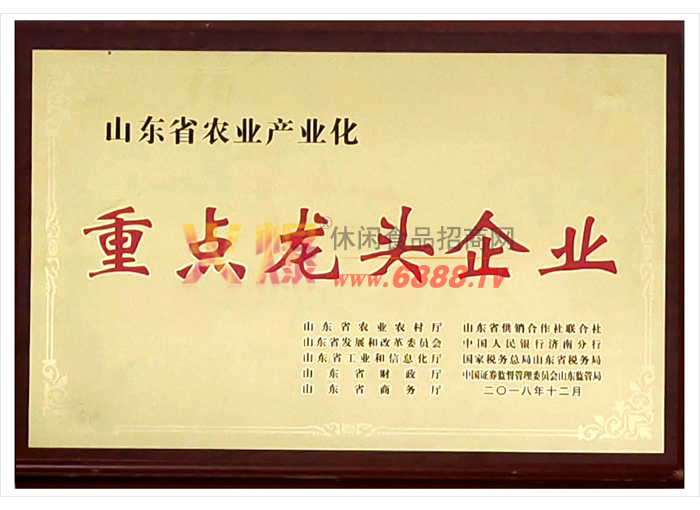 山东省农业产业化
重点龙头企业
火爆®休闲食品招商网
www.6888.TV
山东省农业农村厅
山东省发展和改革委员会
山东省工业和信息化厅
山东省财政厅
山东省商务厅
山东省供销合作社联合社
中国人民银行济南分行
国家税务总局山东省税务局
中国证券监督管理委员会山东监管局
二〇一八年十二月